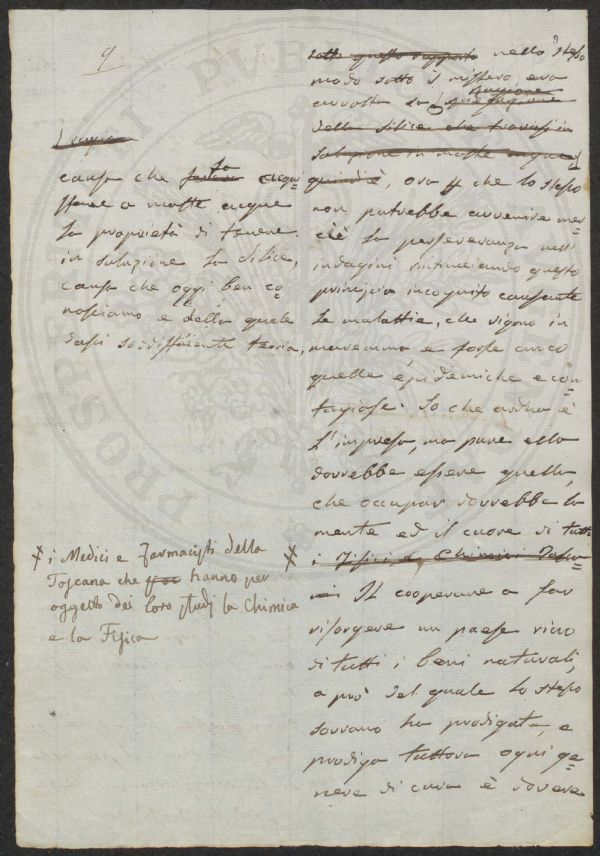 9
sotto questo rapporto nello stesso
modo sotto il mistero era
avvolta la ragione
della silice che trovasi in
soluzione in molte acque
quindi è, ora che lo stesso
non potrebbe avvenire mer-
cè la perseveranza nell'
indagini rintracciando questo
principio incognito causante
le malattie, che vigono in
maremma e forse anco
quelle epidemiche e con-
tagiose. So che ardua è
l'impresa, ma pure ella
dovrebbe essere quella,
che occupar dovrebbe la
mente ed il cuore di tutti
i Fisici e Chimici Tosca-
ni Il cooperare a far
risorgere un paese ricco
di tutti i beni naturali,
a prò del quale lo stesso
sovrano ha prodigate, e
prodiga tuttora ogni ge-
nere di cura è dovere
causa che fa acqui-
stare a molte acque
la proprietà di tenere
in soluzione la silice,
causa che oggi ben co-
nosciamo e della quale
dassi soddisfacente teoria,
i Medici e Farmacisti della
Toscana che hanno per
oggetto dei loro studj la Chimica
e la Fisica
PROSPERITÀ PUBBLICA